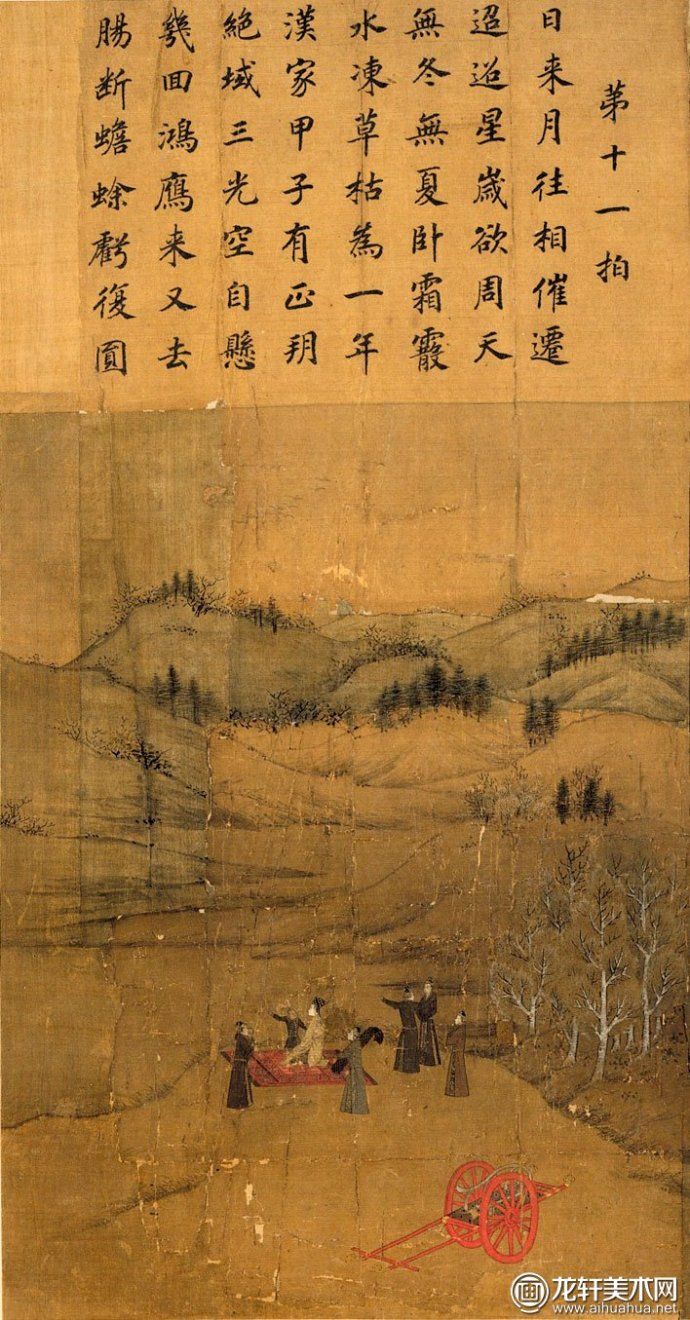 第十一拍
日来月往相催遷
迢迢星歲欲周天
無冬無夏卧霜霰
水凍草枯為一年
漢家甲子有正朔
絶域三光空自懸
幾回鴻鴈来又去
腸断蟾蜍虧復圓
画 龙轩美术网
www.aihuahua.net